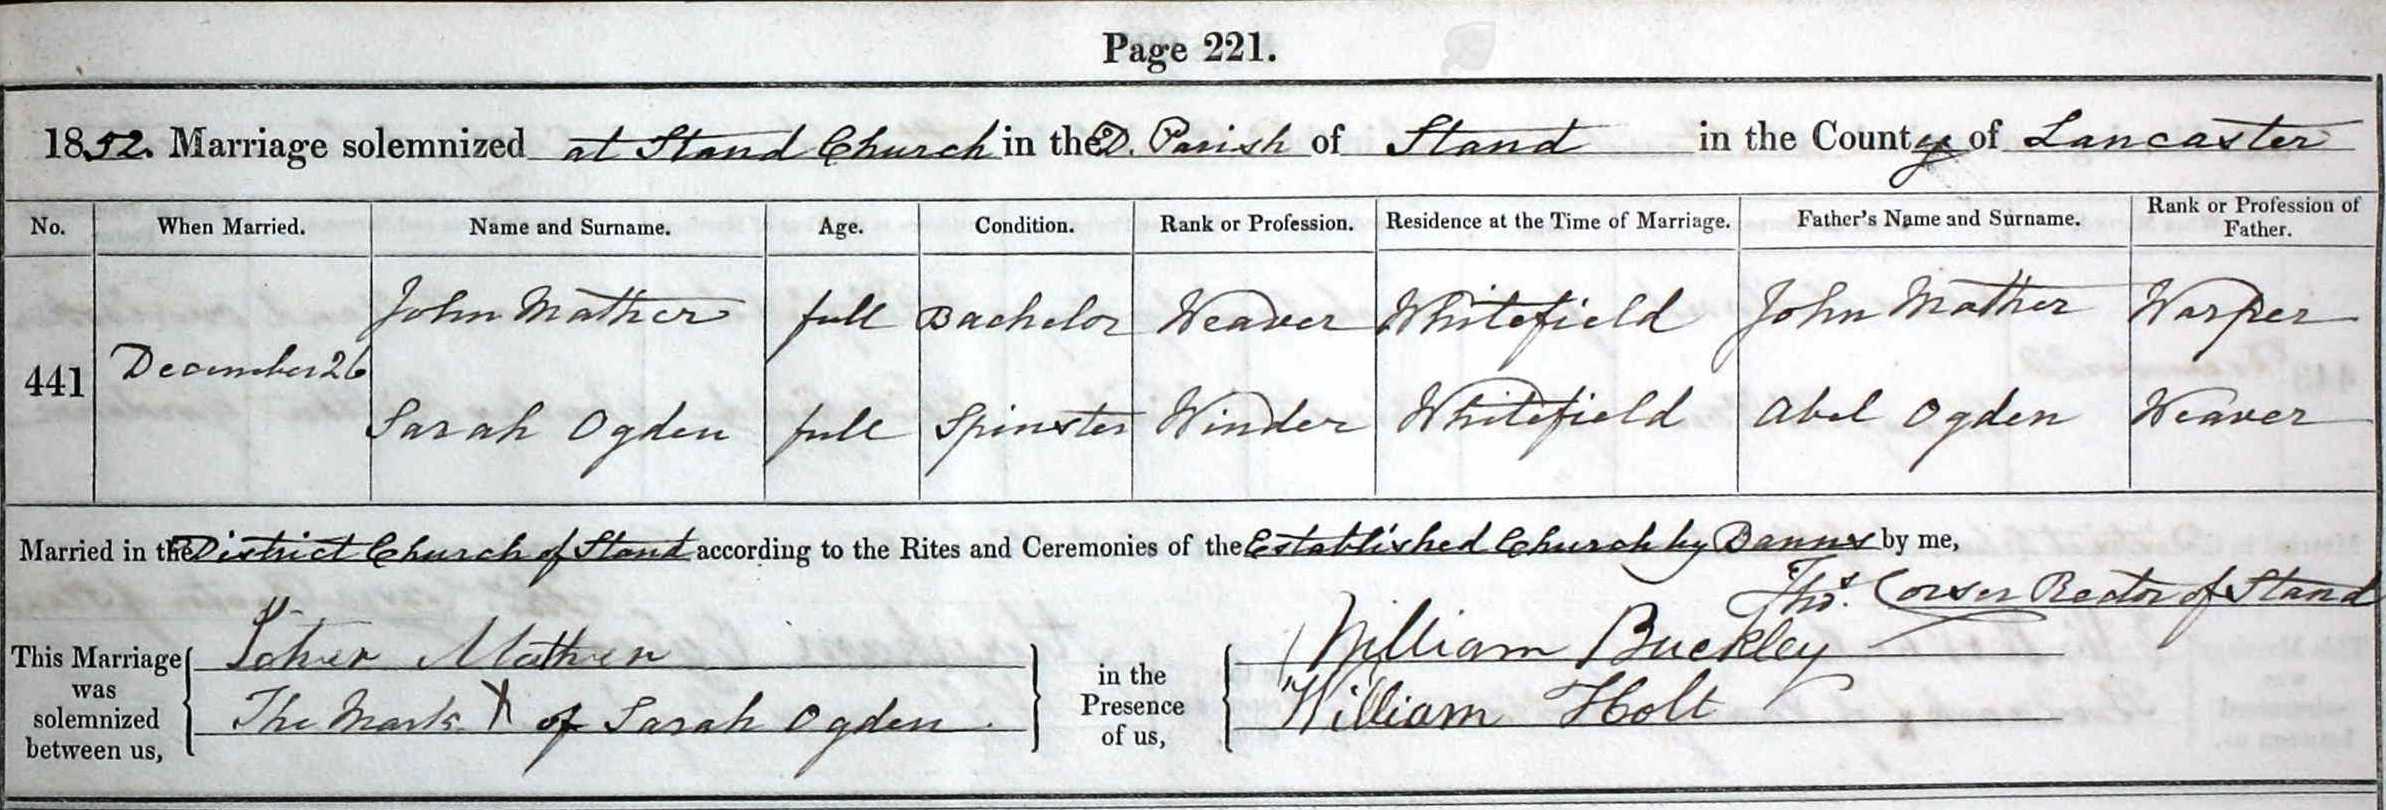 Page 221.
1852. Marriage solemnized at Stand Church in the D. Parish of Stand in the County of Lancaster
No. When Married. Name and Surname. Age. Condition. Rank or Profession. Residence at the Time of Marriage. Father's Name and Surname. Rank or Profession of Father.
John Mather full Bachelor Weaver Whitefield John Mather Warper
441 December 26
Sarah Ogden full Spinster Winder Whitefield Abel Ogden Weaver
Married in the District Church of Stand according to the Rites and Ceremonies of the Established Church by Banns by me,
Thos. Corser Rector of Stand
This Marriage was solemnized between us, John Mather in the Presence of us, William Buckley
The Mark X of Sarah Ogden. William Holt